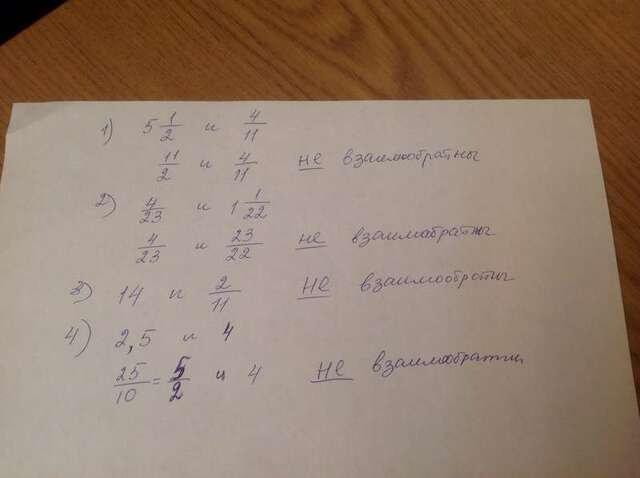 1) 5 1/2 и 4/11
11/2 и 4/11 не взаимообратны
2) 4/23 и 1 1/22
4/23 и 23/22 не взаимобратны
3) 14 и 2/11 не взаимообротны
4) 2,5 и 4
25/10 = 5/2 и 4 не взаимообратны